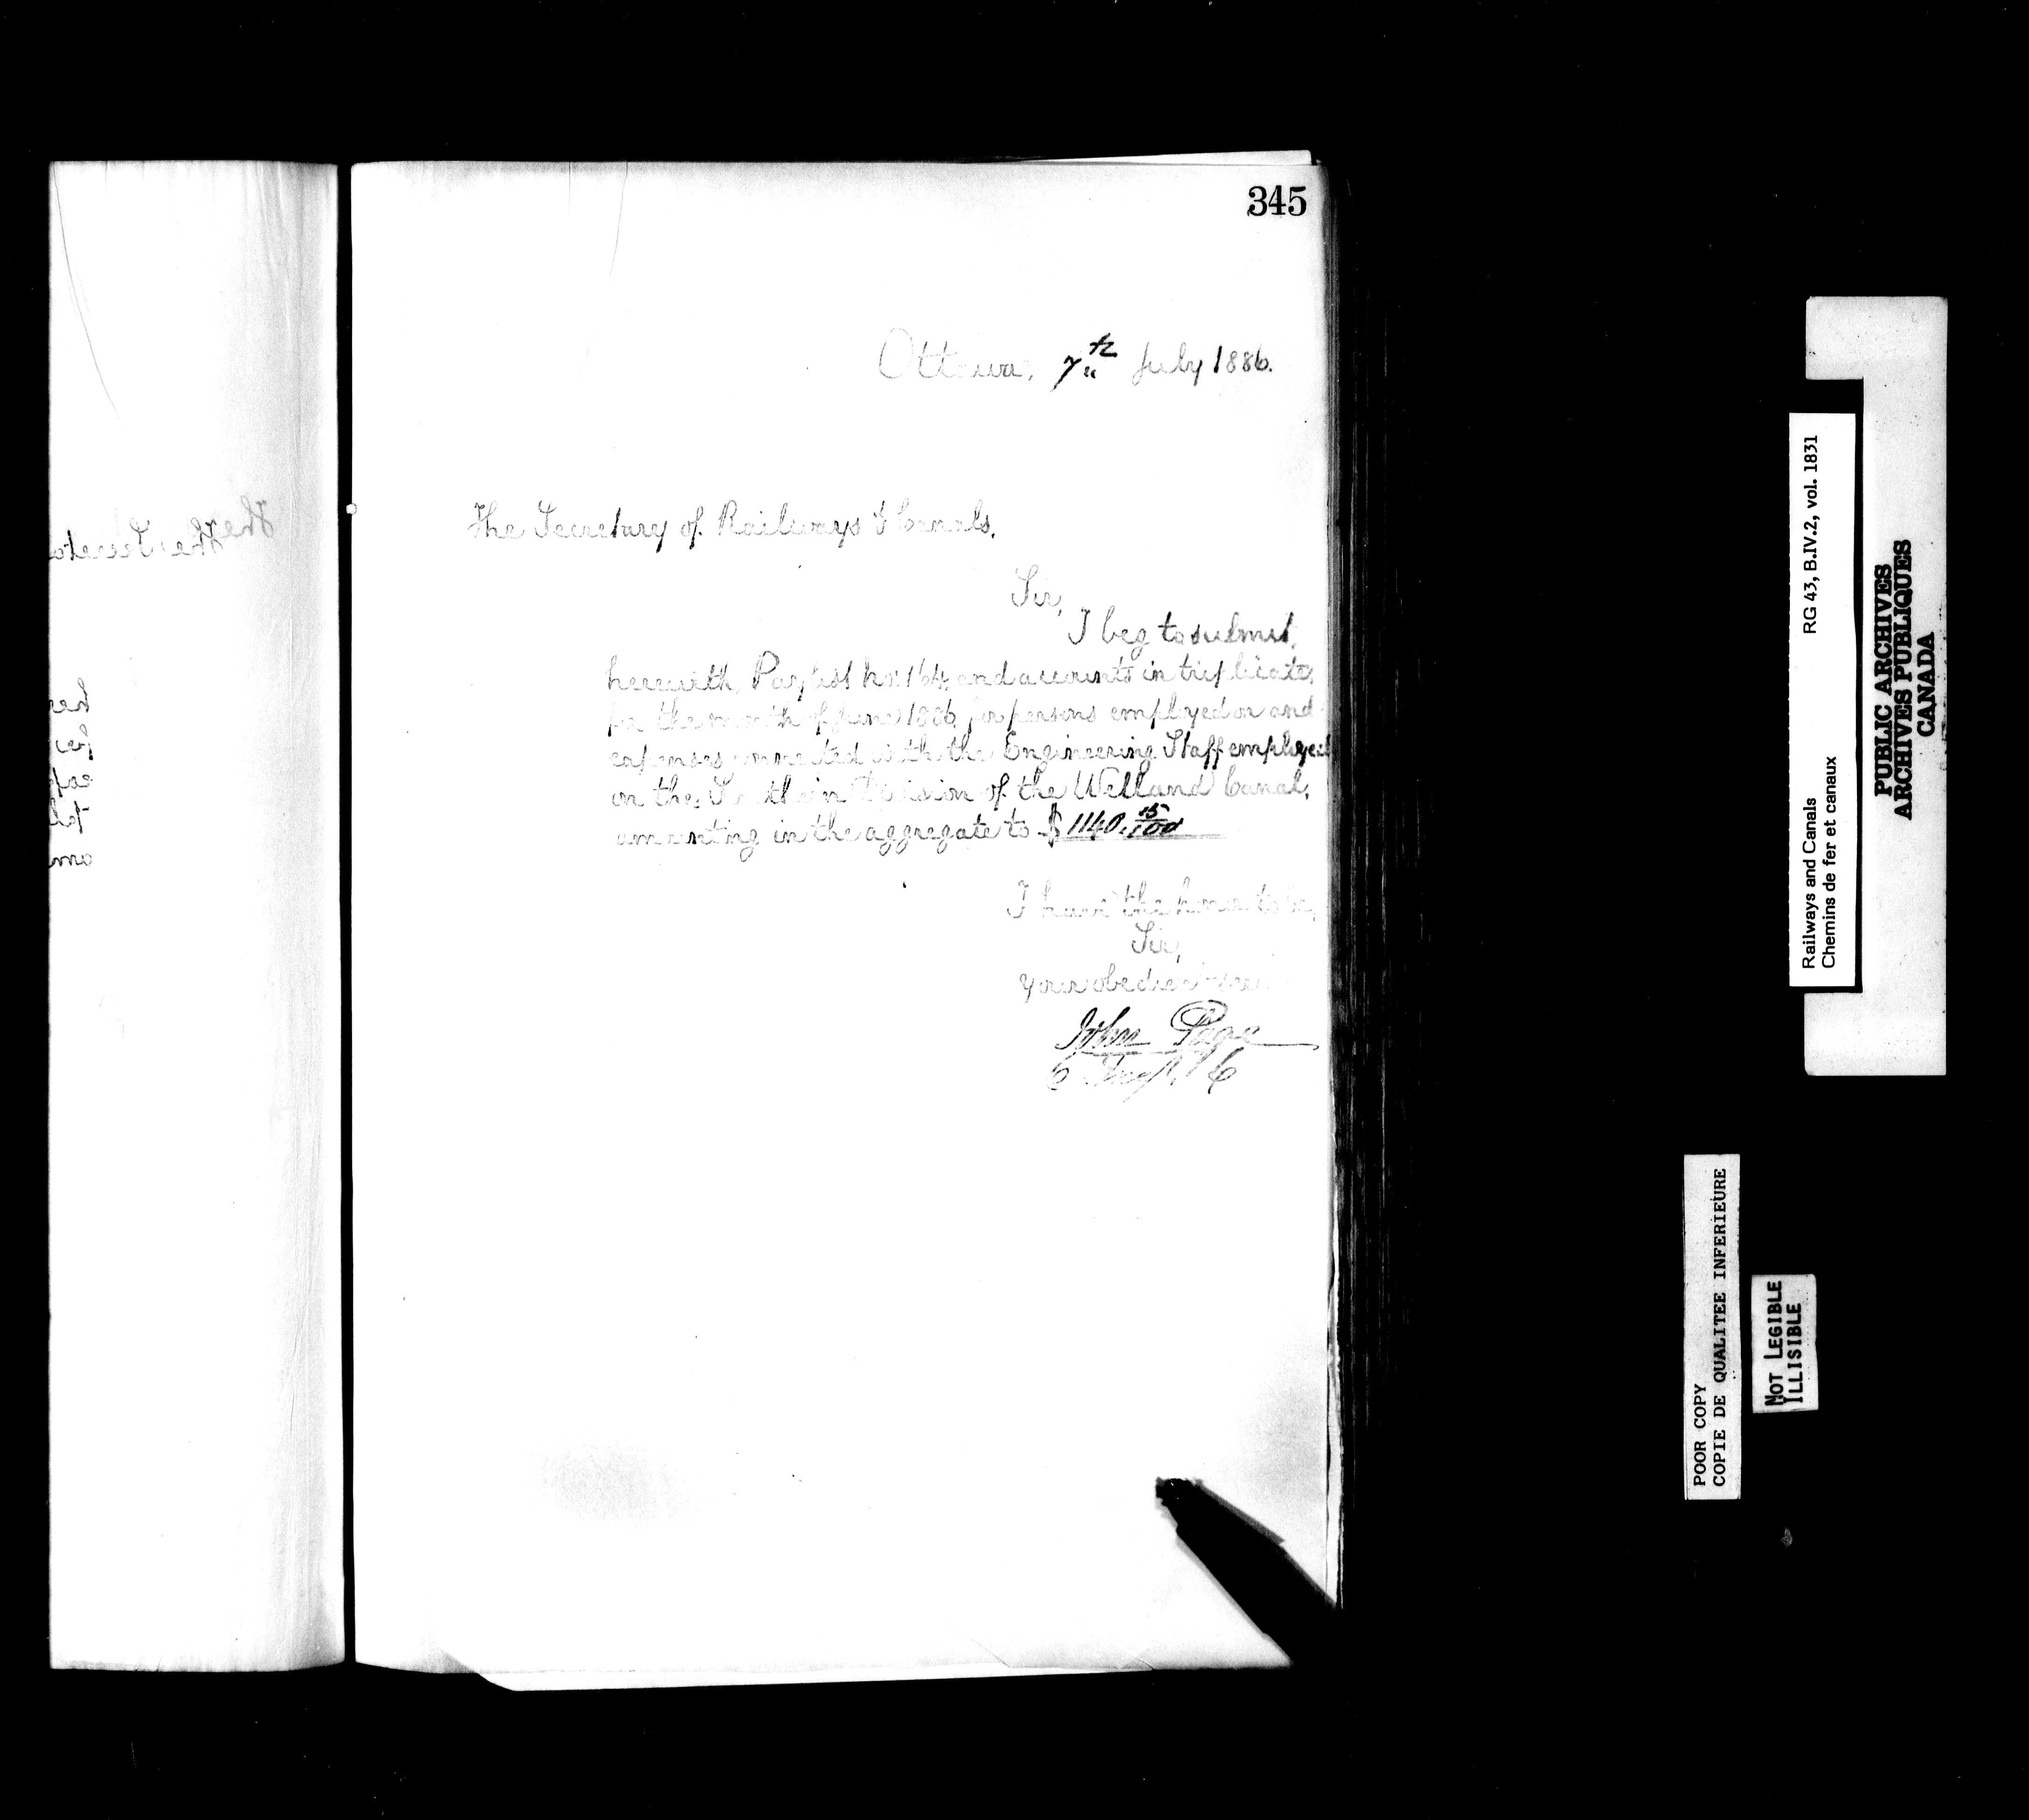 345
Ottawa, 7th July 1886.
The Secretary of Railways & Canals.
Sir,
I beg to submit,
herewith, Paylist No. 164, and accounts in triplicate,
for the month of June 1886, for persons employed on and
expenses connected with the Engineering Staff employed
on the Southern Division of the Welland Canal,
amounting in the aggregate to $1140.15/100
I have the honor to be,
Sir,
Your obedient
John Page
The
The Secreta
her
for
exp
am
Railways and Canals RG 43, B.IV.2, vol. 1831
Chemins de fer et canaux
PUBLIC ARCHIVES
ARCHIVES PUBLIQUES
CANADA
POOR COPY
COPIE DE QUALITEE INFERIEURE
NOT LEGIBLE
ILLISIBLE